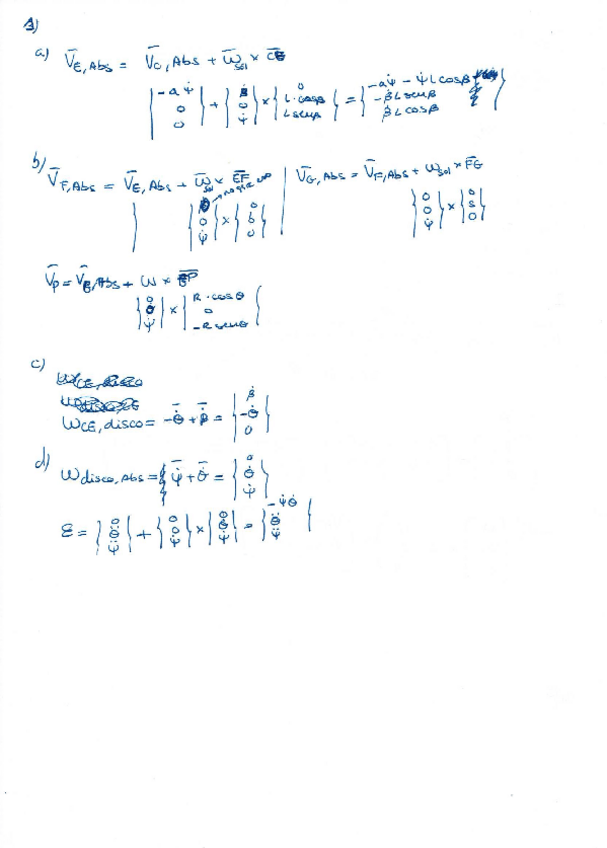 3)
a) V̄E,Abs = V̄O,Abs + W̄sol × CE
{-aψ̇ 0 0} + {β̇ 0 ψ̇} × {0 L·cosβ Lsenβ} = {-aψ̇ - ψ̇Lcosβ -β̇Lsenβ β̇Lcosβ}
b) V̄F,Abs = V̄E,Abs + W̄sol × EF | V̄G,Abs = V̄F,Abs + Wsol × FG
{ } {0 0 ψ̇} × {0 b 0} {0 0 ψ̇} × {0 s 0}
V̄P = V̄G,Abs + W × GP
{0 θ̇ ψ̇} × {R·cosθ 0 -Rsenθ}
c)
WCE,disco = -θ̇ + β̇ = {β̇ -θ̇ 0}
d) Wdisco,Abs = ψ̇ + θ̇ = {0 θ̇ ψ̇}
Ɛ = {0 θ̈ ψ̈} + {0 0 ψ̇} × {0 θ̇ ψ̇} = {-ψ̇θ̇ θ̈ ψ̈}